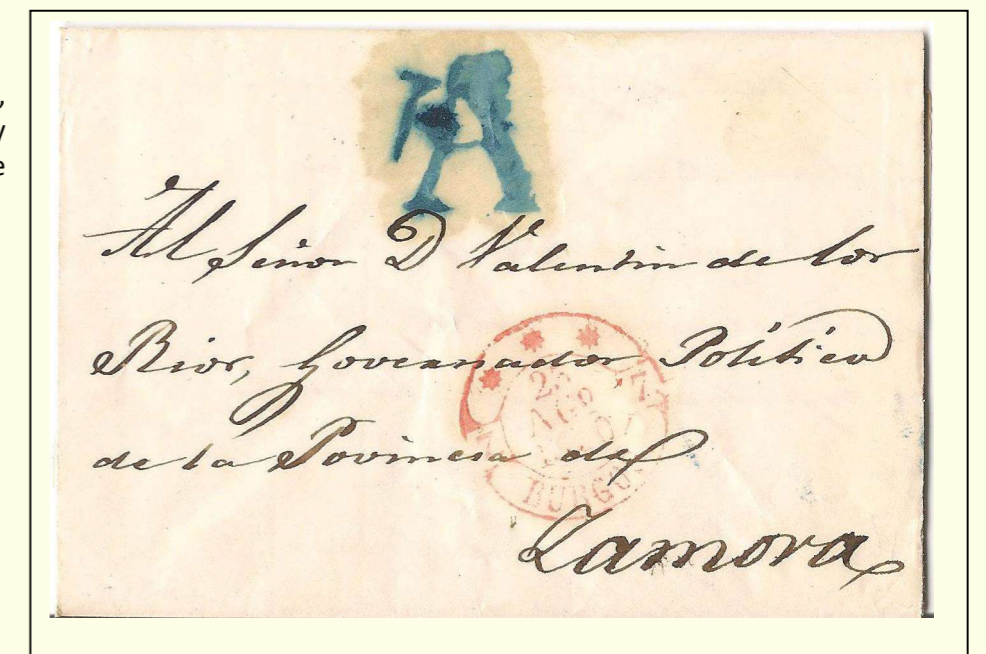 R
Al Señor D Valentin de los
Rios, Governador Politico
de la Povincia de
Zamora
AGO
BURGOS